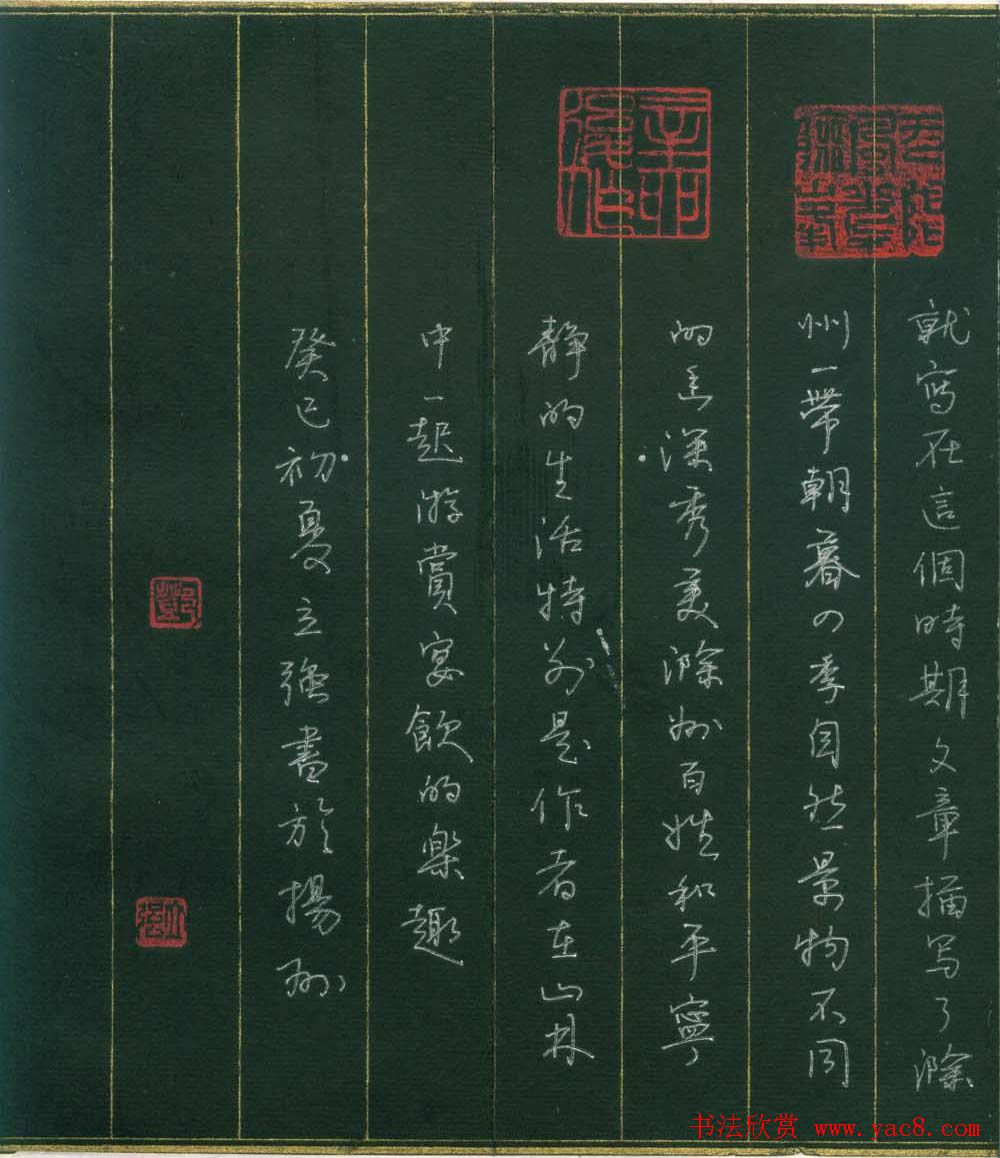 就寫在這個時期文章描写了滁
州一帶朝暮四季自然景物不同
的幽深秀美滁州百姓和平寧
靜的生活特别是作者在山林
中一起游賞宴飲的樂趣
癸巳初夏立強書於揚州
鄧
立強
书法欣赏 www.yac8.com